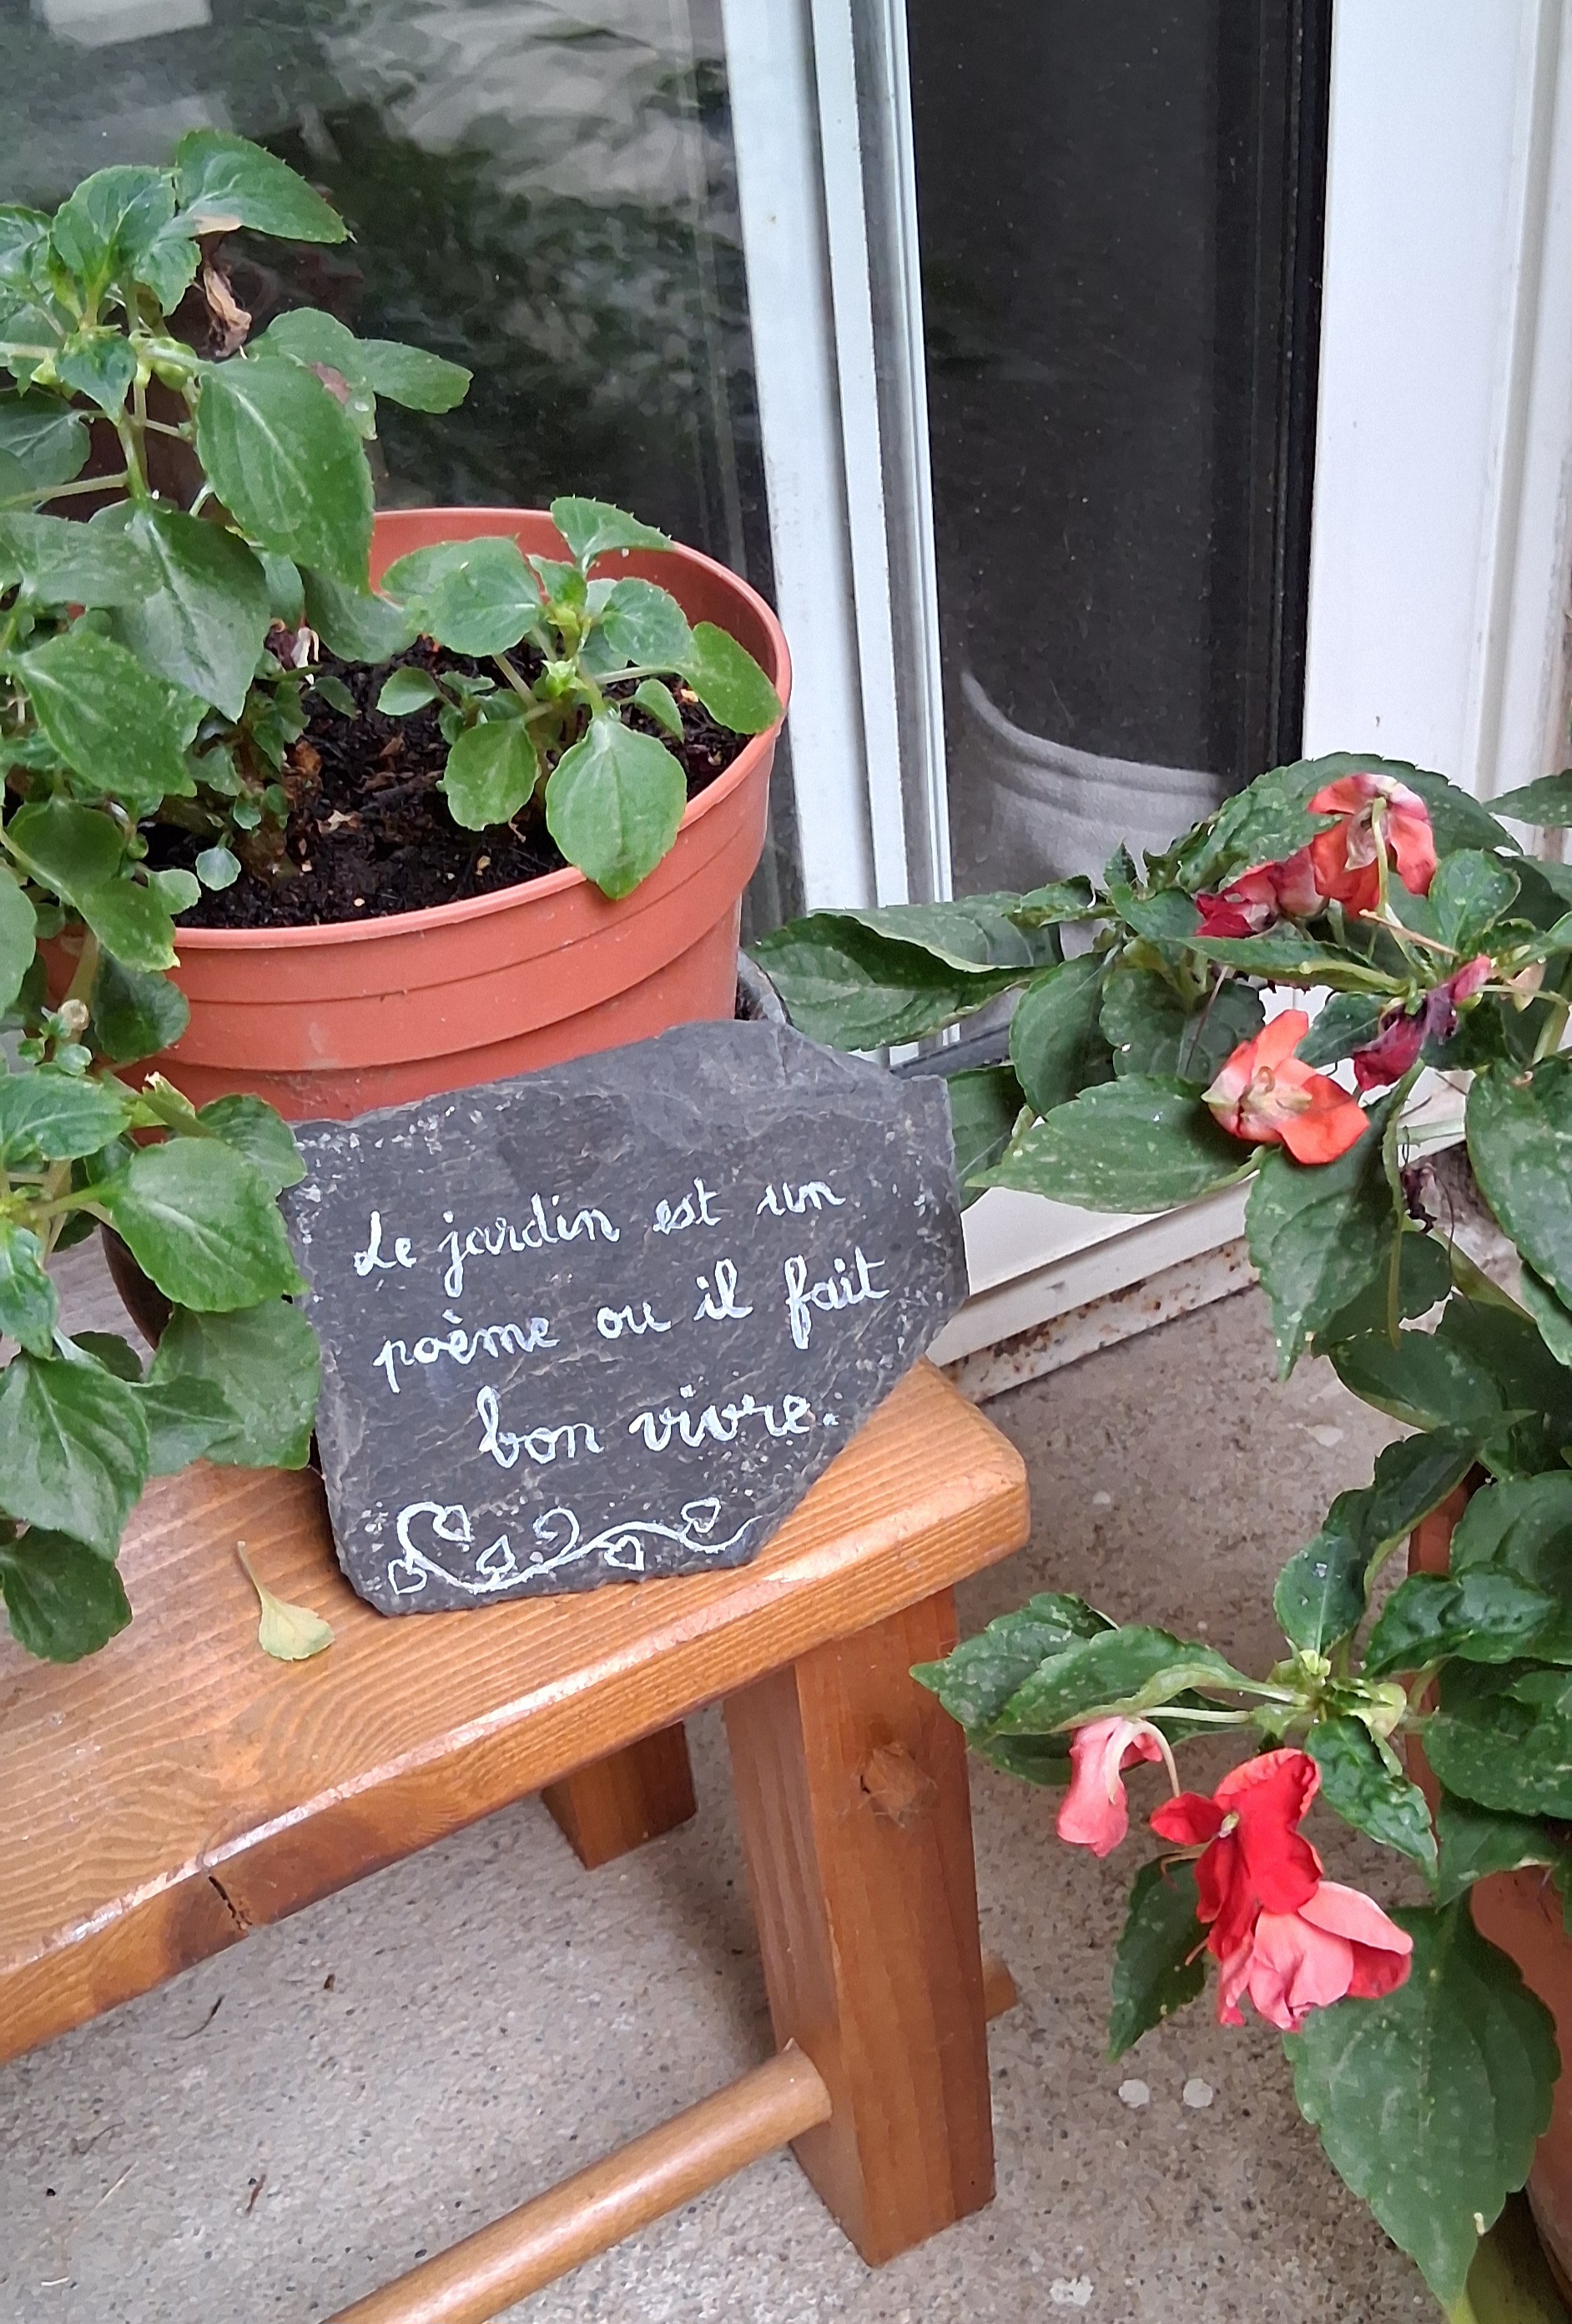 Le jardin est un
poème ou il fait
bon vivre.